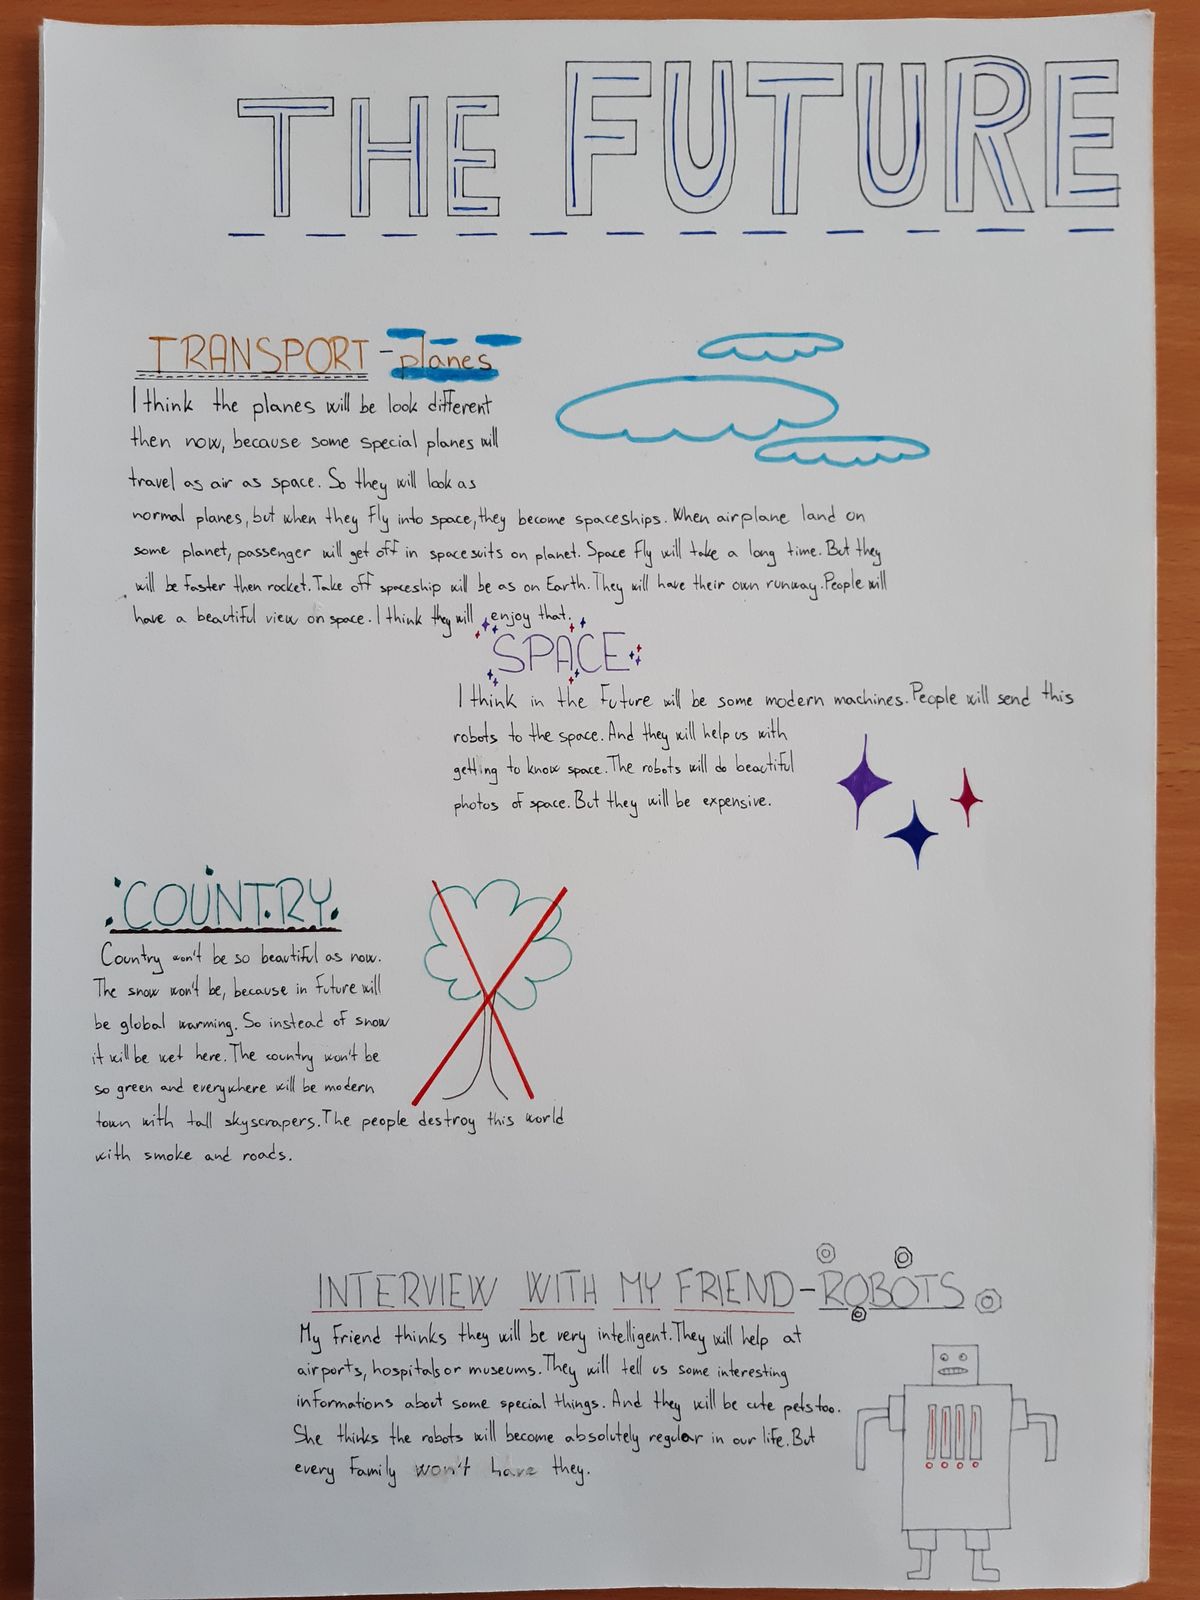 THE FUTURE
TRANSPORT - planes
I think the planes will be look different
then now, because some special planes will
travel as air as space. So they will look as
normal planes, but when they fly into space, they become spaceships. When airplane land on
some planet, passenger will get off in spacesuits on planet. Space fly will take a long time. But they
will be faster then rocket. Take off spaceship will be as on Earth. They will have their own runway. People will
have a beautiful view on space. I think they will enjoy that.
SPACE
I think in the future will be some modern machines. People will send this
robots to the space. And they will help us with
getting to know space. The robots will do beautiful
photos of space. But they will be expensive.
COUNTRY
Country won't be so beautiful as now.
The snow won't be, because in future will
be global warming. So instead of snow
it will be wet here. The country won't be
so green and everywhere will be modern
town with tall skyscrapers. The people destroy this world
with smoke and roads.
INTERVIEW WITH MY FRIEND - ROBOTS
My friend thinks they will be very intelligent. They will help at
airports, hospitals or museums. They will tell us some interesting
informations about some special things. And they will be cute pets too.
She thinks the robots will become absolutely regular in our life. But
every family won't have they.